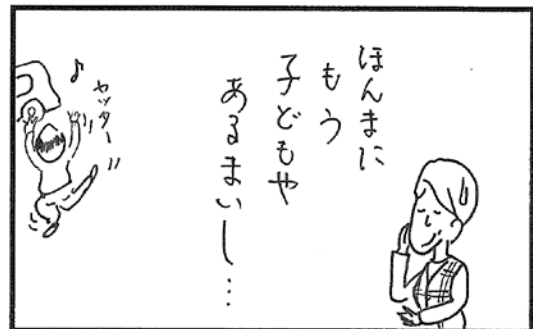 ほんまに
もう
子どもや
あるまいし…
♪
ヤッター